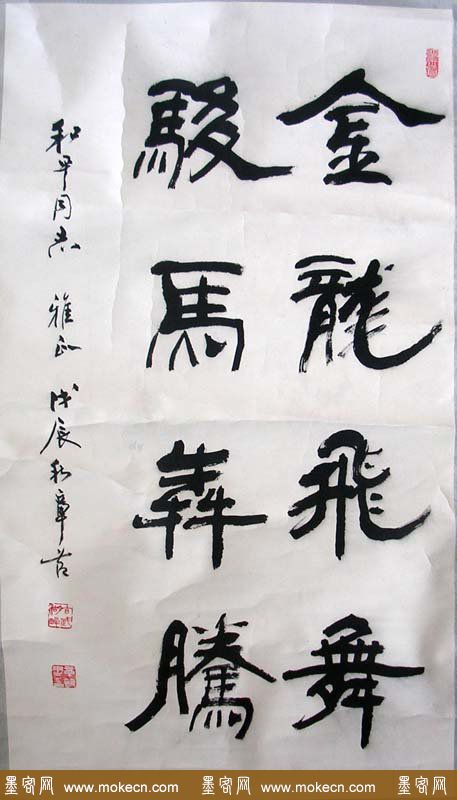 金龍飛舞
駿馬奔騰
和平同志 雅正 戊辰秋章
墨客网 www.mokecn.com 墨客网 www.mokecn.com 墨客网